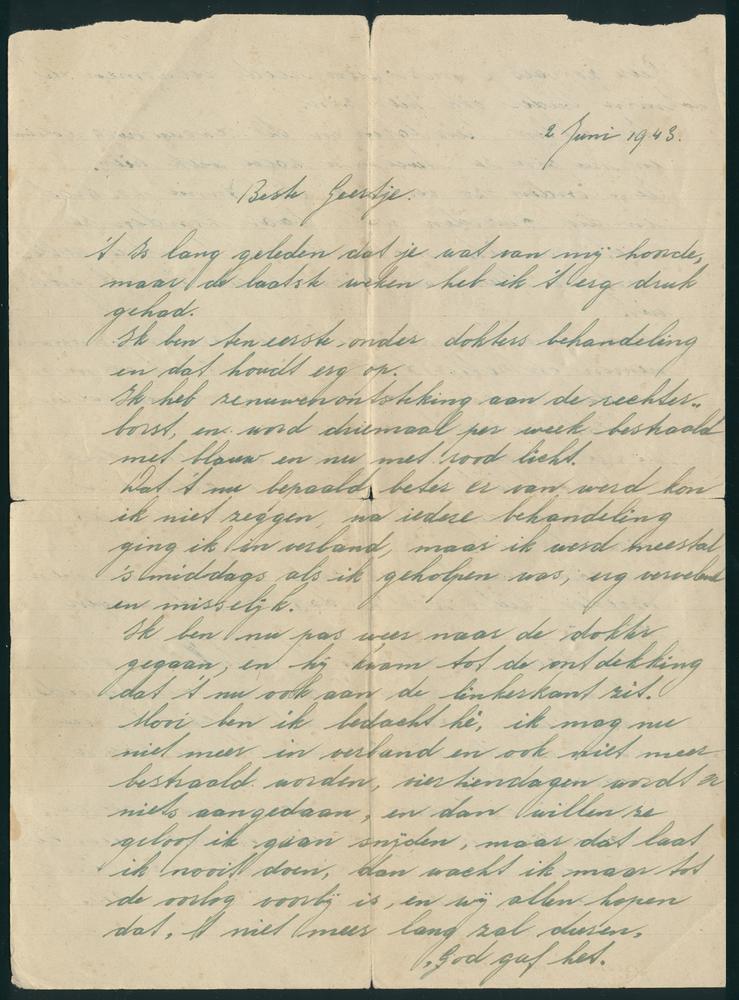 2 Juni 1943.
Beste Geertje.
't Is lang geleden dat je wat van mij hoorde,
maar de laatste weken heb ik 't erg druk
gehad.
Ik ben ten eerste onder dokters behandeling
en dat houdt erg op.
Ik heb zenuwenontsteking aan de rechter„
borst, en word driemaal per week bestraald
met blauw en nu met rood licht.
Dat 't nu bepaald beter er van werd kon
ik niet zeggen, na iedere behandeling
ging ik in verband, maar ik werd meestal
's middags als ik geholpen was, erg vervelend
en misselijk.
Ik ben nu pas weer naar de dokter
gegaan, en hij kwam tot de ontdekking
dat 't nu ook aan de linkerkant zit.
Mooi ben ik bedacht hè, ik mag nu
niet meer in verband en ook niet meer
bestraald worden, viertiendagen wordt er
niets aangedaan, en dan willen ze
geloof ik gaan snijden, maar dat laat
ik nooit doen, dan wacht ik maar tot
de oorlog voorbij is, en wij allen hopen
dat, 't niet meer lang zal duren,
God gaf het.